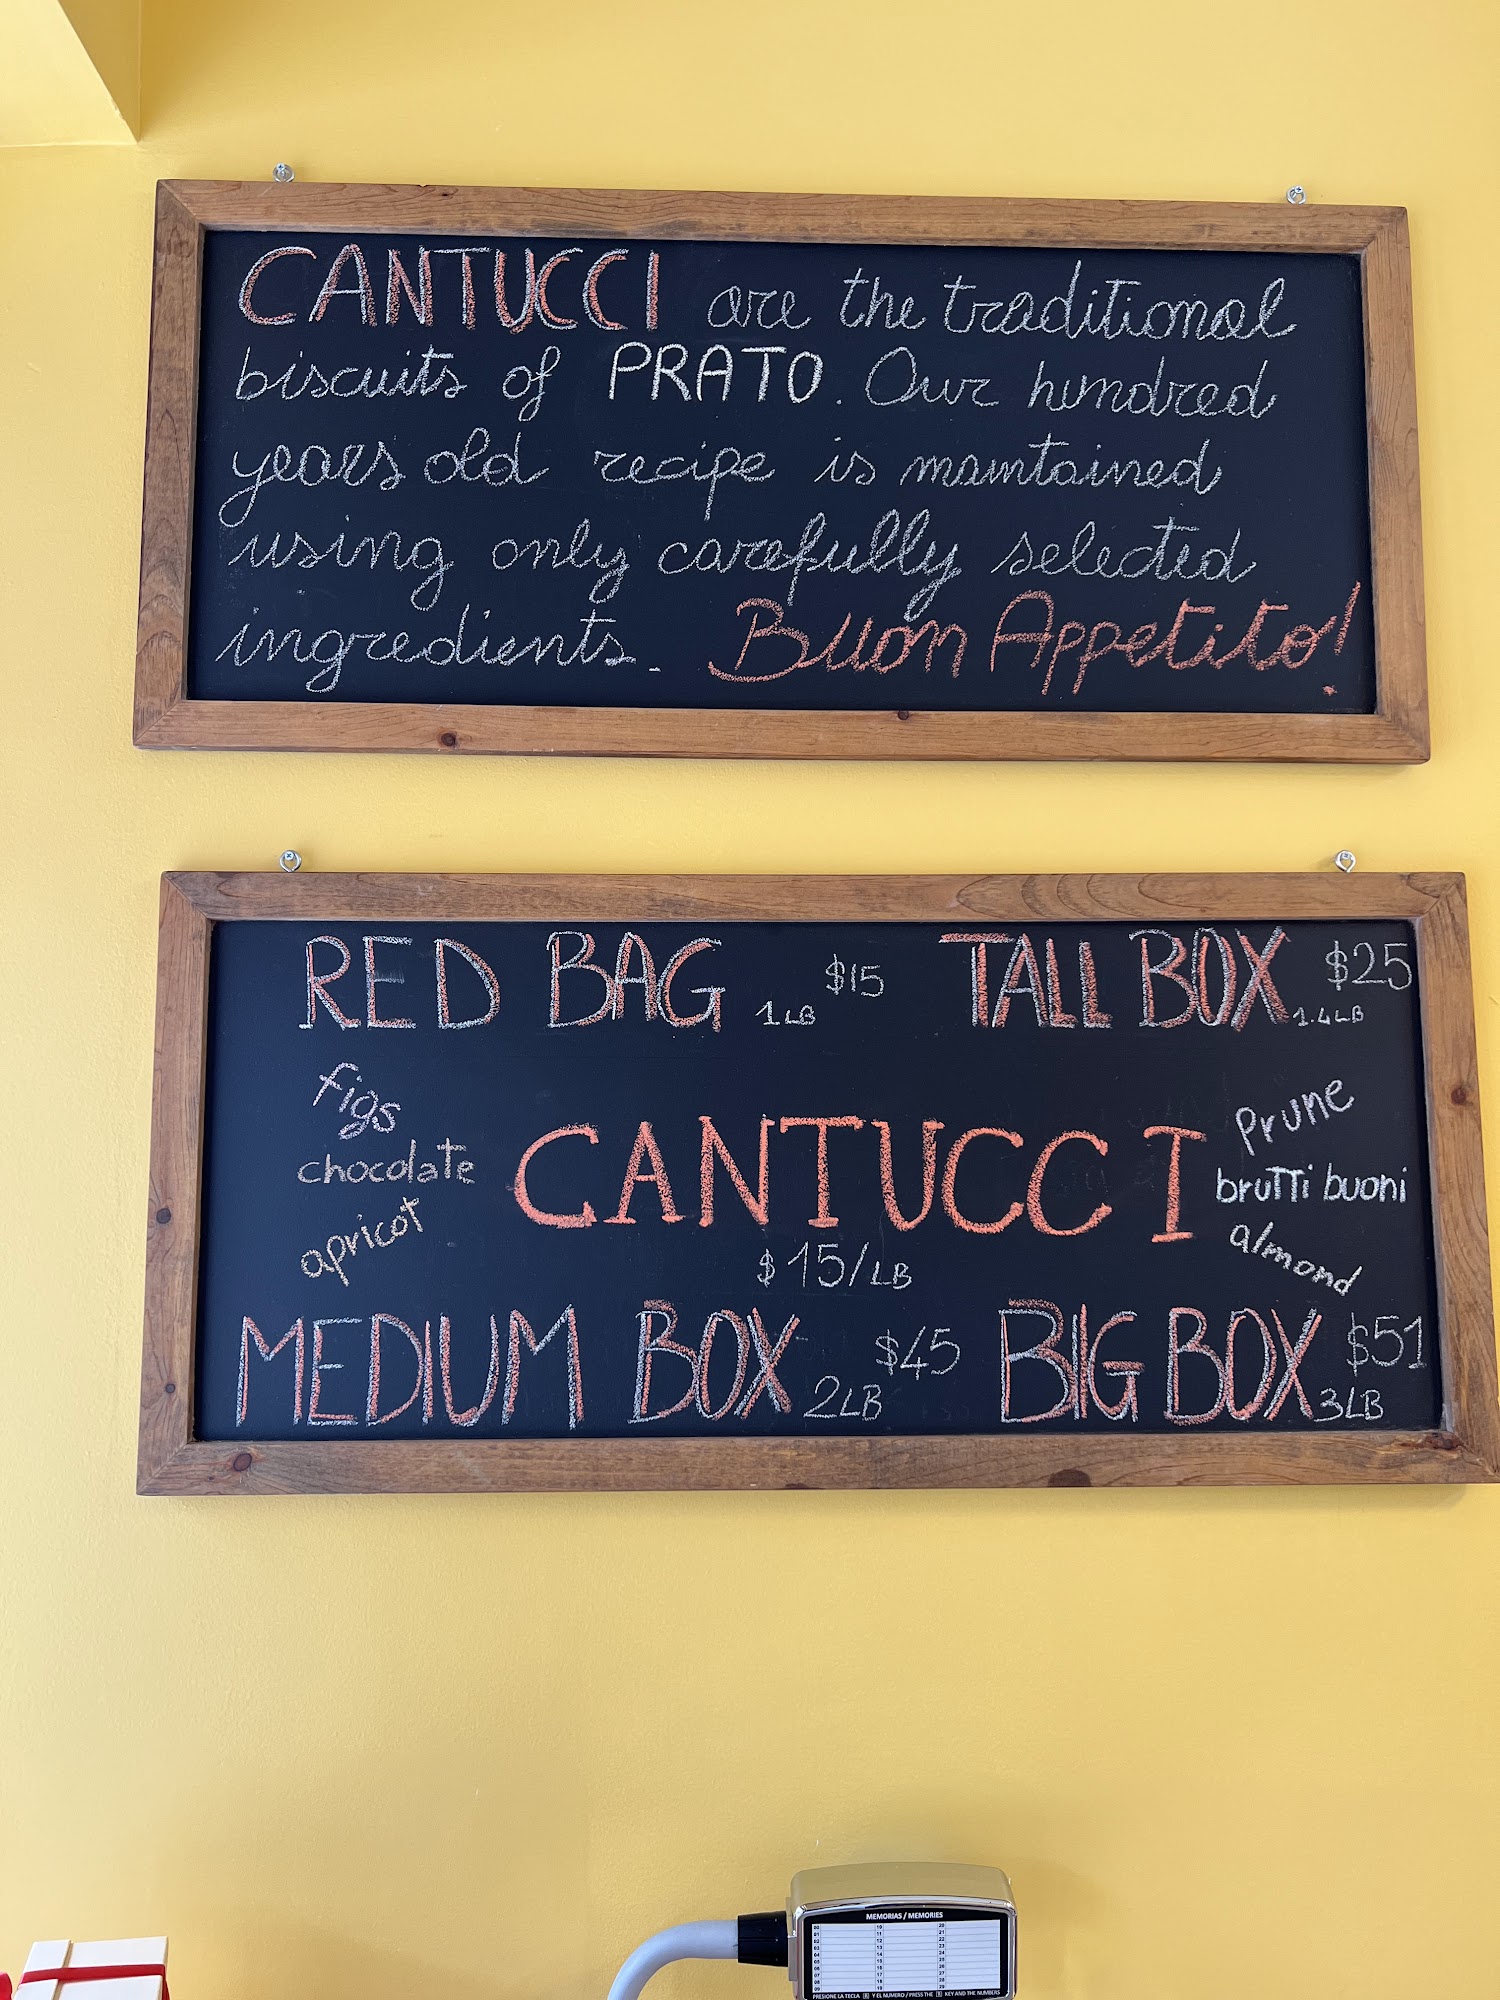 CANTUCCI are the traditional
biscuits of PRATO. Our hundred
years old recipe is maintained
using only carefully selected
ingredients. Buon Appetito!
RED BAG 1LB $15 TALL BOX 1.4LB $25
figs
chocolate
apricot
CANTUCCI
$15/LB
prune
brutti buoni
almond
MEDIUM BOX 2LB $45 BIG BOX 3LB $51
MEMORIAS / MEMORIES
00 10 20
01 11 21
02 12 22
03 13 23
04 14 24
05 15 25
06 16 26
07 17 27
08 18 28
09 19 29
PRESIONE LA TECLA Y EL NUMERO / PRESS THE KEY AND THE NUMBERS